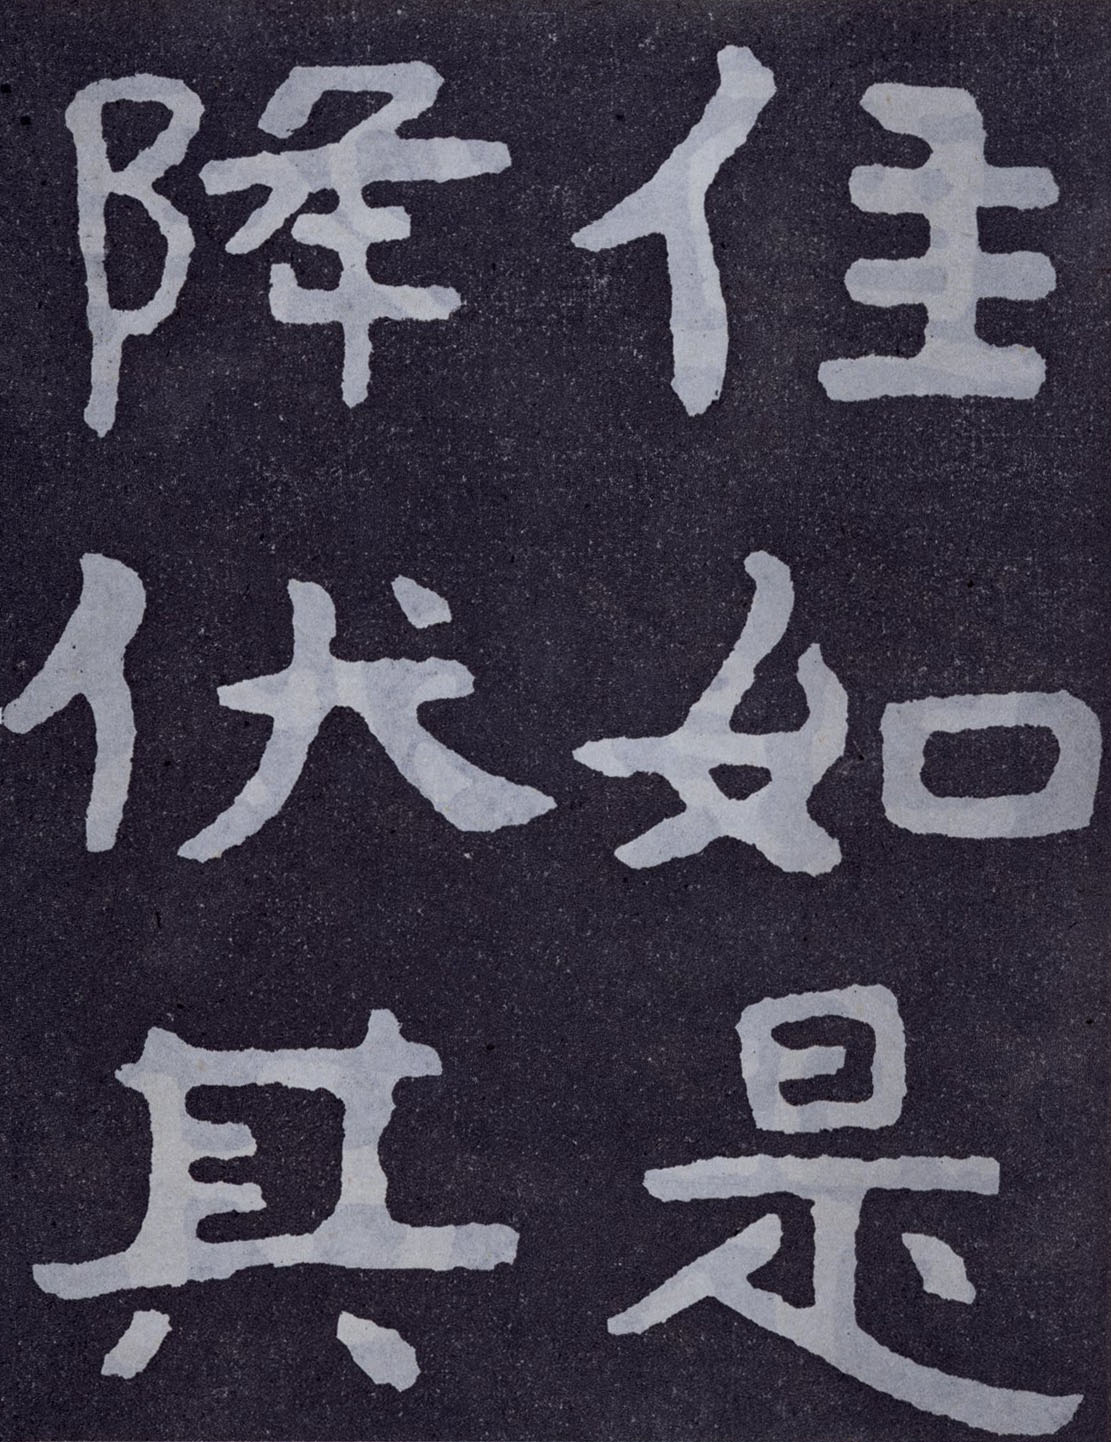 住如是
降伏其